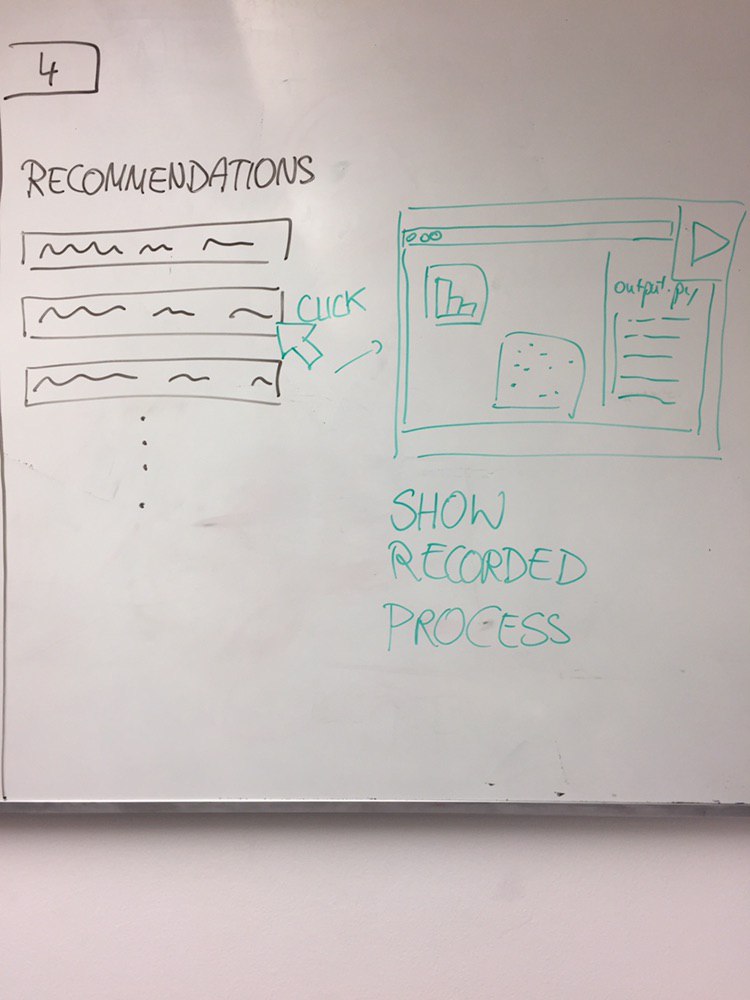 4
RECOMMENDATIONS
CLICK
output.py
SHOW
RECORDED
PROCESS